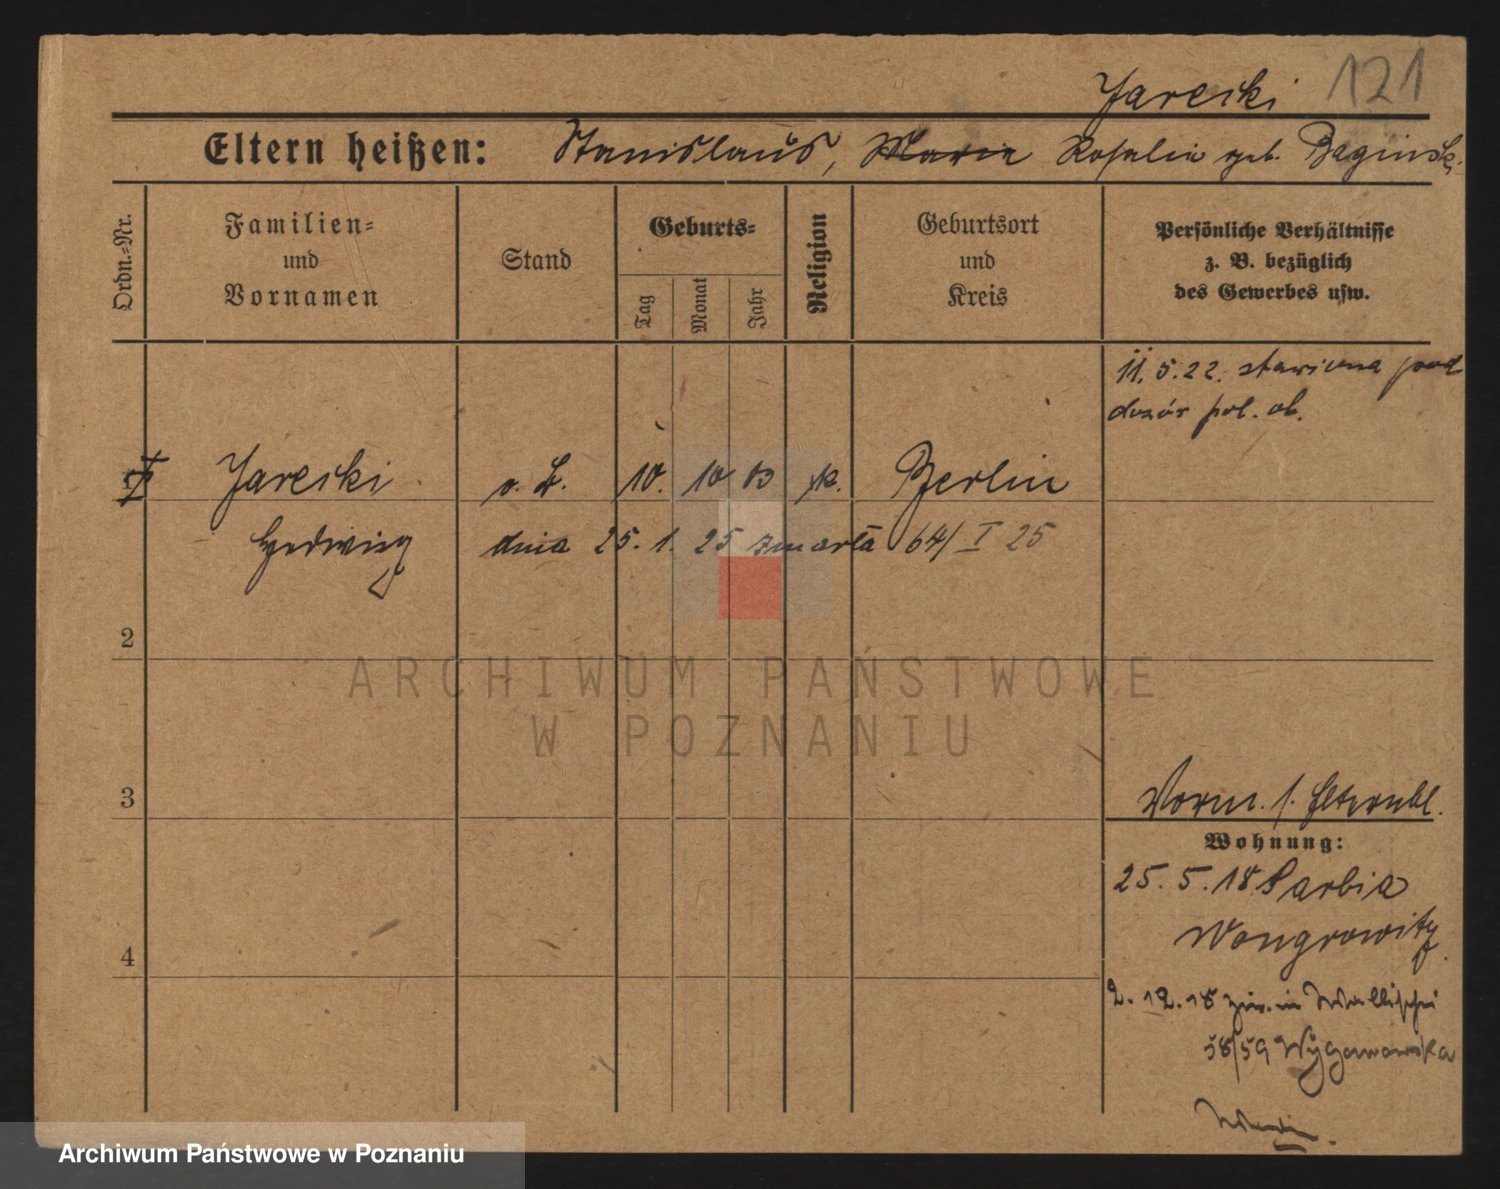 Jarecki 121
Eltern heißen: Stanislaus, Maria Rosalia geb. Baginski
Ordn.-Nr.
Familien-
und
Vornamen
Stand
Geburts-
Tag
Monat
Jahr
Religion
Geburtsort
und
Kreis
Persönliche Verhältnisse
z. B. bezüglich
des Gewerbes usw.
11.5.22. stawiona pod
dozór pol. ob.
Jarecki o. B. 10. 10 03 k. Berlin
Hedwig dnia 25. 1. 25 zmarła 64/I 25
2
3
4
Vorm. s. Elternbl.
Wohnung:
25. 5. 18 Sarbia
Wongrowitz
2. 12. 18 zur. in Wallischei
58/59 Wyganowska
ARCHIWUM PAŃSTWOWE
W POZNANIU
Archiwum Państwowe w Poznaniu